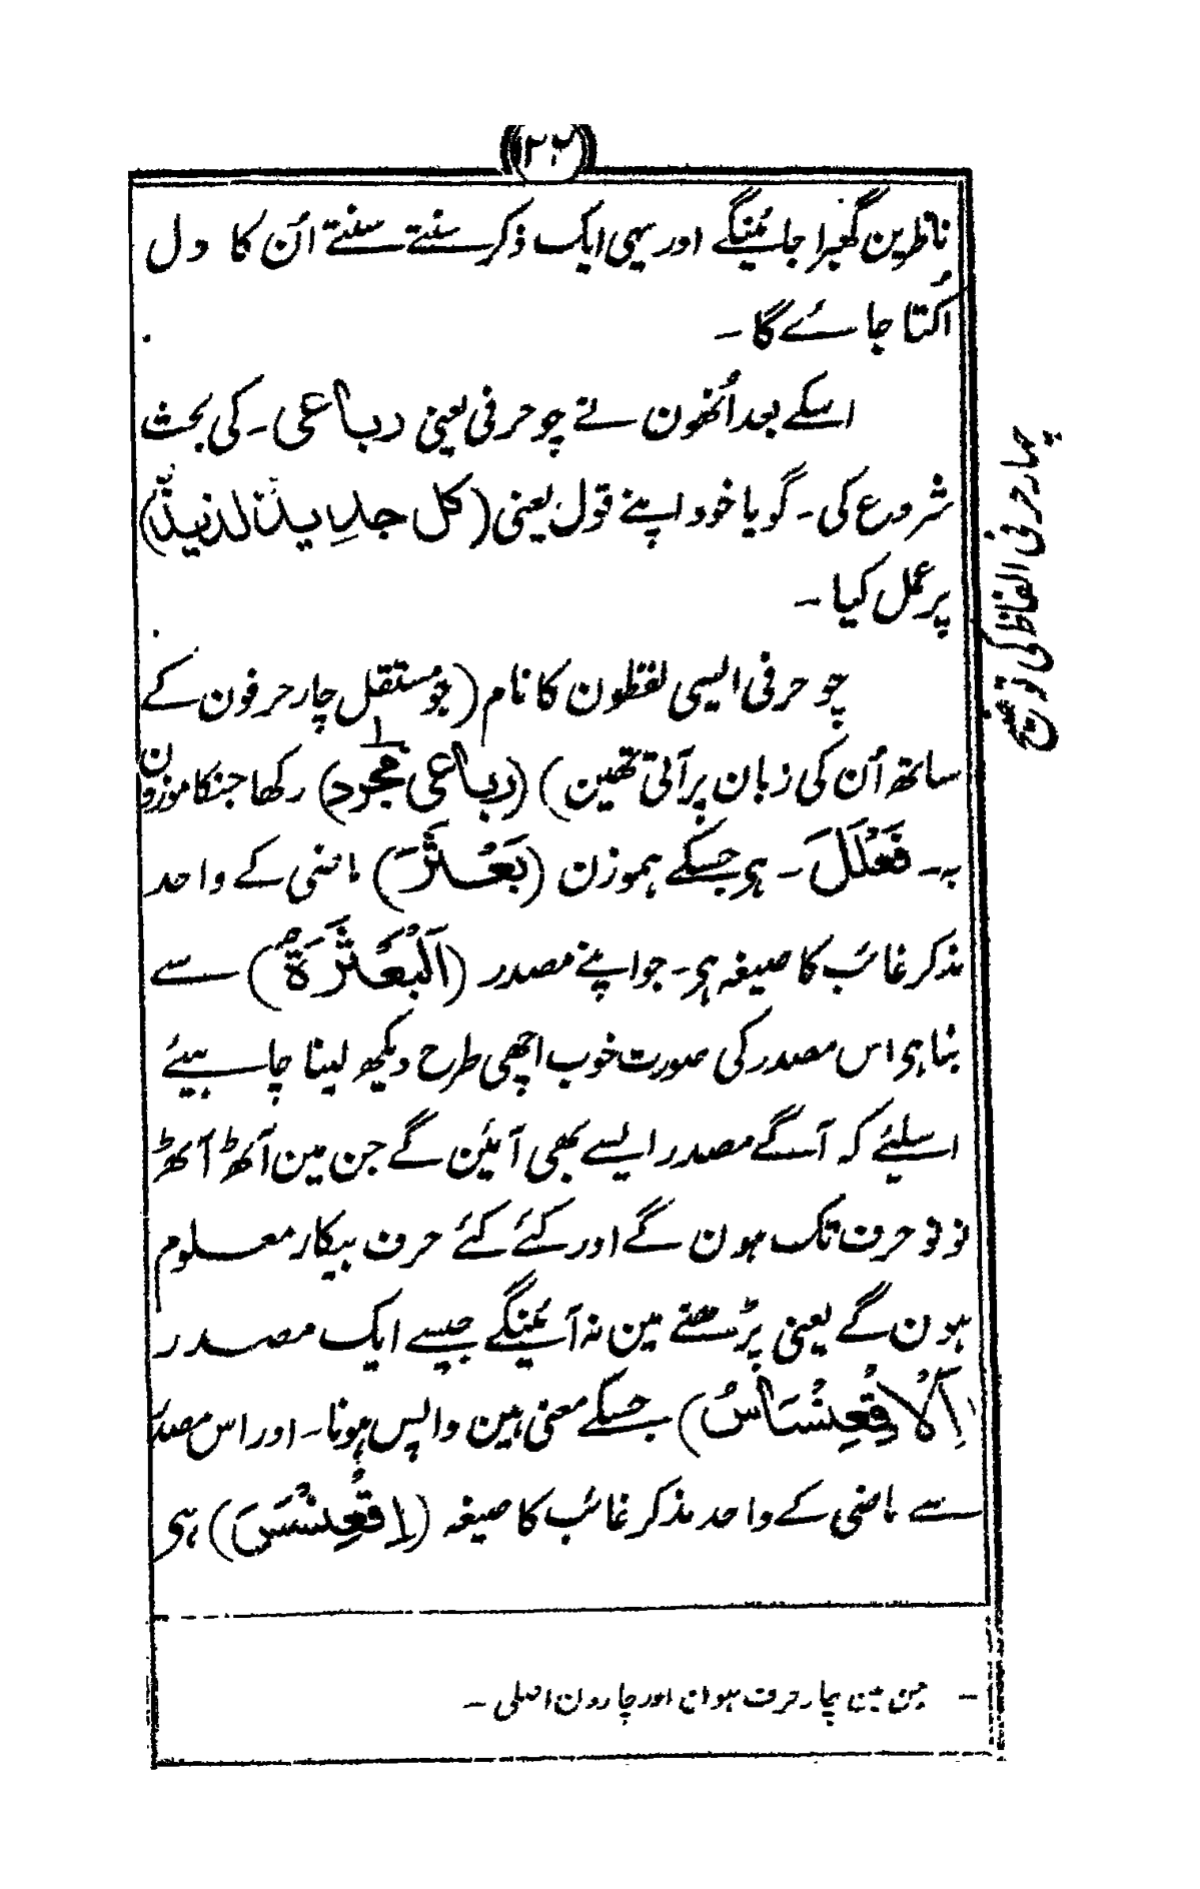 (۲۲)
ناظرین گھبرا جائینگے اور یہی ایک ذکر سنتے سنتے اُن کا دل
اُکتا جائے گا ۔
اسکے بعد اُنھون نے چو حرفی یعنی رباعی ۔ کی بحث
شروع کی ۔ گویا خود اپنے قول یعنی (کل جدِیدٌ لذیذٌ)
پر عمل کیا ۔
چو حرفی ایسی لفظون کا نام (جو مستقل چار حرفون کے
ساتھ اُن کی زبان پر آتی تھین) (رباعی مجرد) رکھا جنکا موزون
بہ ۔ فَعْلَلَ ۔ ہی جسکے ہموزن (بَعْثَرَ) ماضی کے واحد
مذکر غائب کا صیغہ ہی ۔ جو اپنے مصدر (اَلْبَعْثَرَةُ) سے
بنا ہی اس مصدر کی صورت خوب اچھی طرح دیکھ لینا چاہیئے
اسلیئے کہ آگے مصدر ایسے بھی آئین گے جن مین آٹھ آٹھ
نو نو حرف تک ہون گے اور کئے کئے حرف بیکار معلوم
ہون گے یعنی پڑھنے مین نہ آئینگے جیسے ایک مصدر
(اَلْاِقْعِنْسَاسُ) جسکے معنی ہین واپس ہونا ۔ اور اس مصدر
سے ماضی کے واحد مذکر غائب کا صیغہ (اِقْعَنْسَسَ) ہی
چہار حرفی الفاظ کی توضیح
۔ جن مین چار حرف ہون اور چارون اصلی ۔